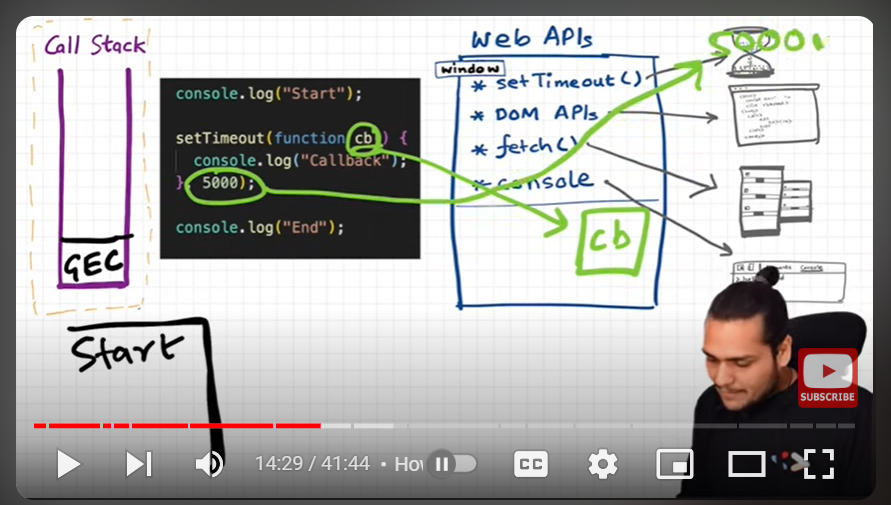 Call Stack
GEC
Start
console.log("Start");
setTimeout(function cb() {
console.log("Callback");
}, 5000);
console.log("End");
Web APIs
window
* setTimeout()
* DOM APIs
* fetch()
* console
cb
5000
Console
SUBSCRIBE
14:29 / 41:44 • How
CC